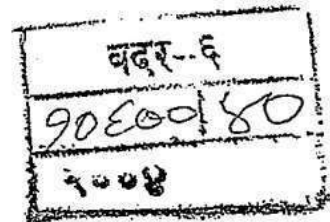 वदर--६
१०६००/४०
२००४